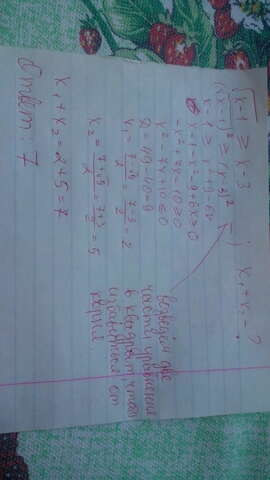 √x-1 ≥ x-3 ; x₁+x₂-?
(√x-1)² ≥ (x-3)²
x-1 ≥ x²+9-6x
x-1-x²-9+6x ≥ 0
-x²+7x-10 ≥ 0
x²-7x+10 ≤ 0
D=49-40=9
x₁ = (7-√9)/2 = (7-3)/2 = 2
x₂ = (7+√9)/2 = (7+3)/2 = 5
x₁+x₂ = 2+5=7
Ответ: 7
возведем две
части уравнения
в квадрат чтобы
избавиться от
корня.